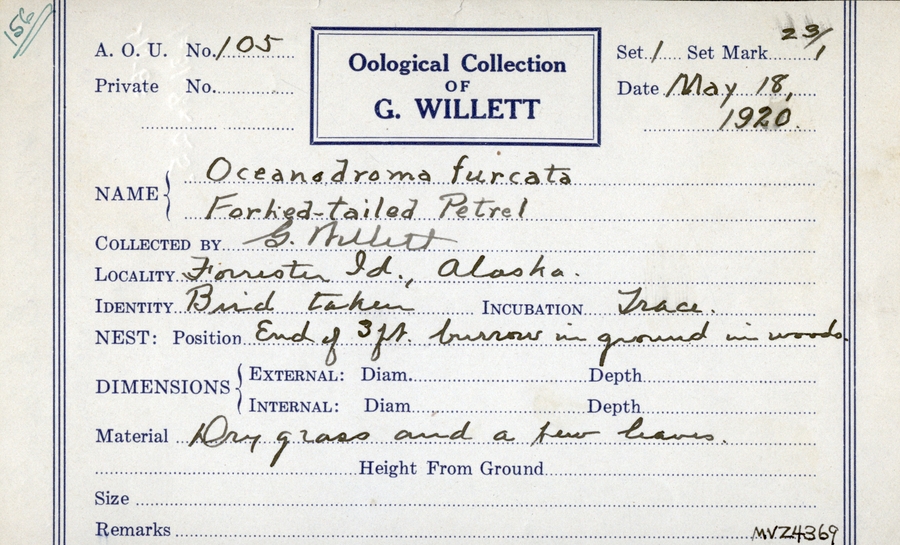 156
A. O. U. No. 105
Oological Collection
OF
G. WILLETT
Set 1 Set Mark 23/1
Private No.
Date May 18,
1920.
NAME { Oceanodroma furcata
Forked-tailed Petrel
COLLECTED BY G. Willett
LOCALITY Forrester Id., Alaska.
IDENTITY Bird taken INCUBATION Trace.
NEST: Position End of 3 ft. burrow in ground in woods.
DIMENSIONS { EXTERNAL: Diam. Depth
INTERNAL: Diam Depth
Material Dry grass and a few leaves.
Height From Ground
Size
Remarks
MVZ4369